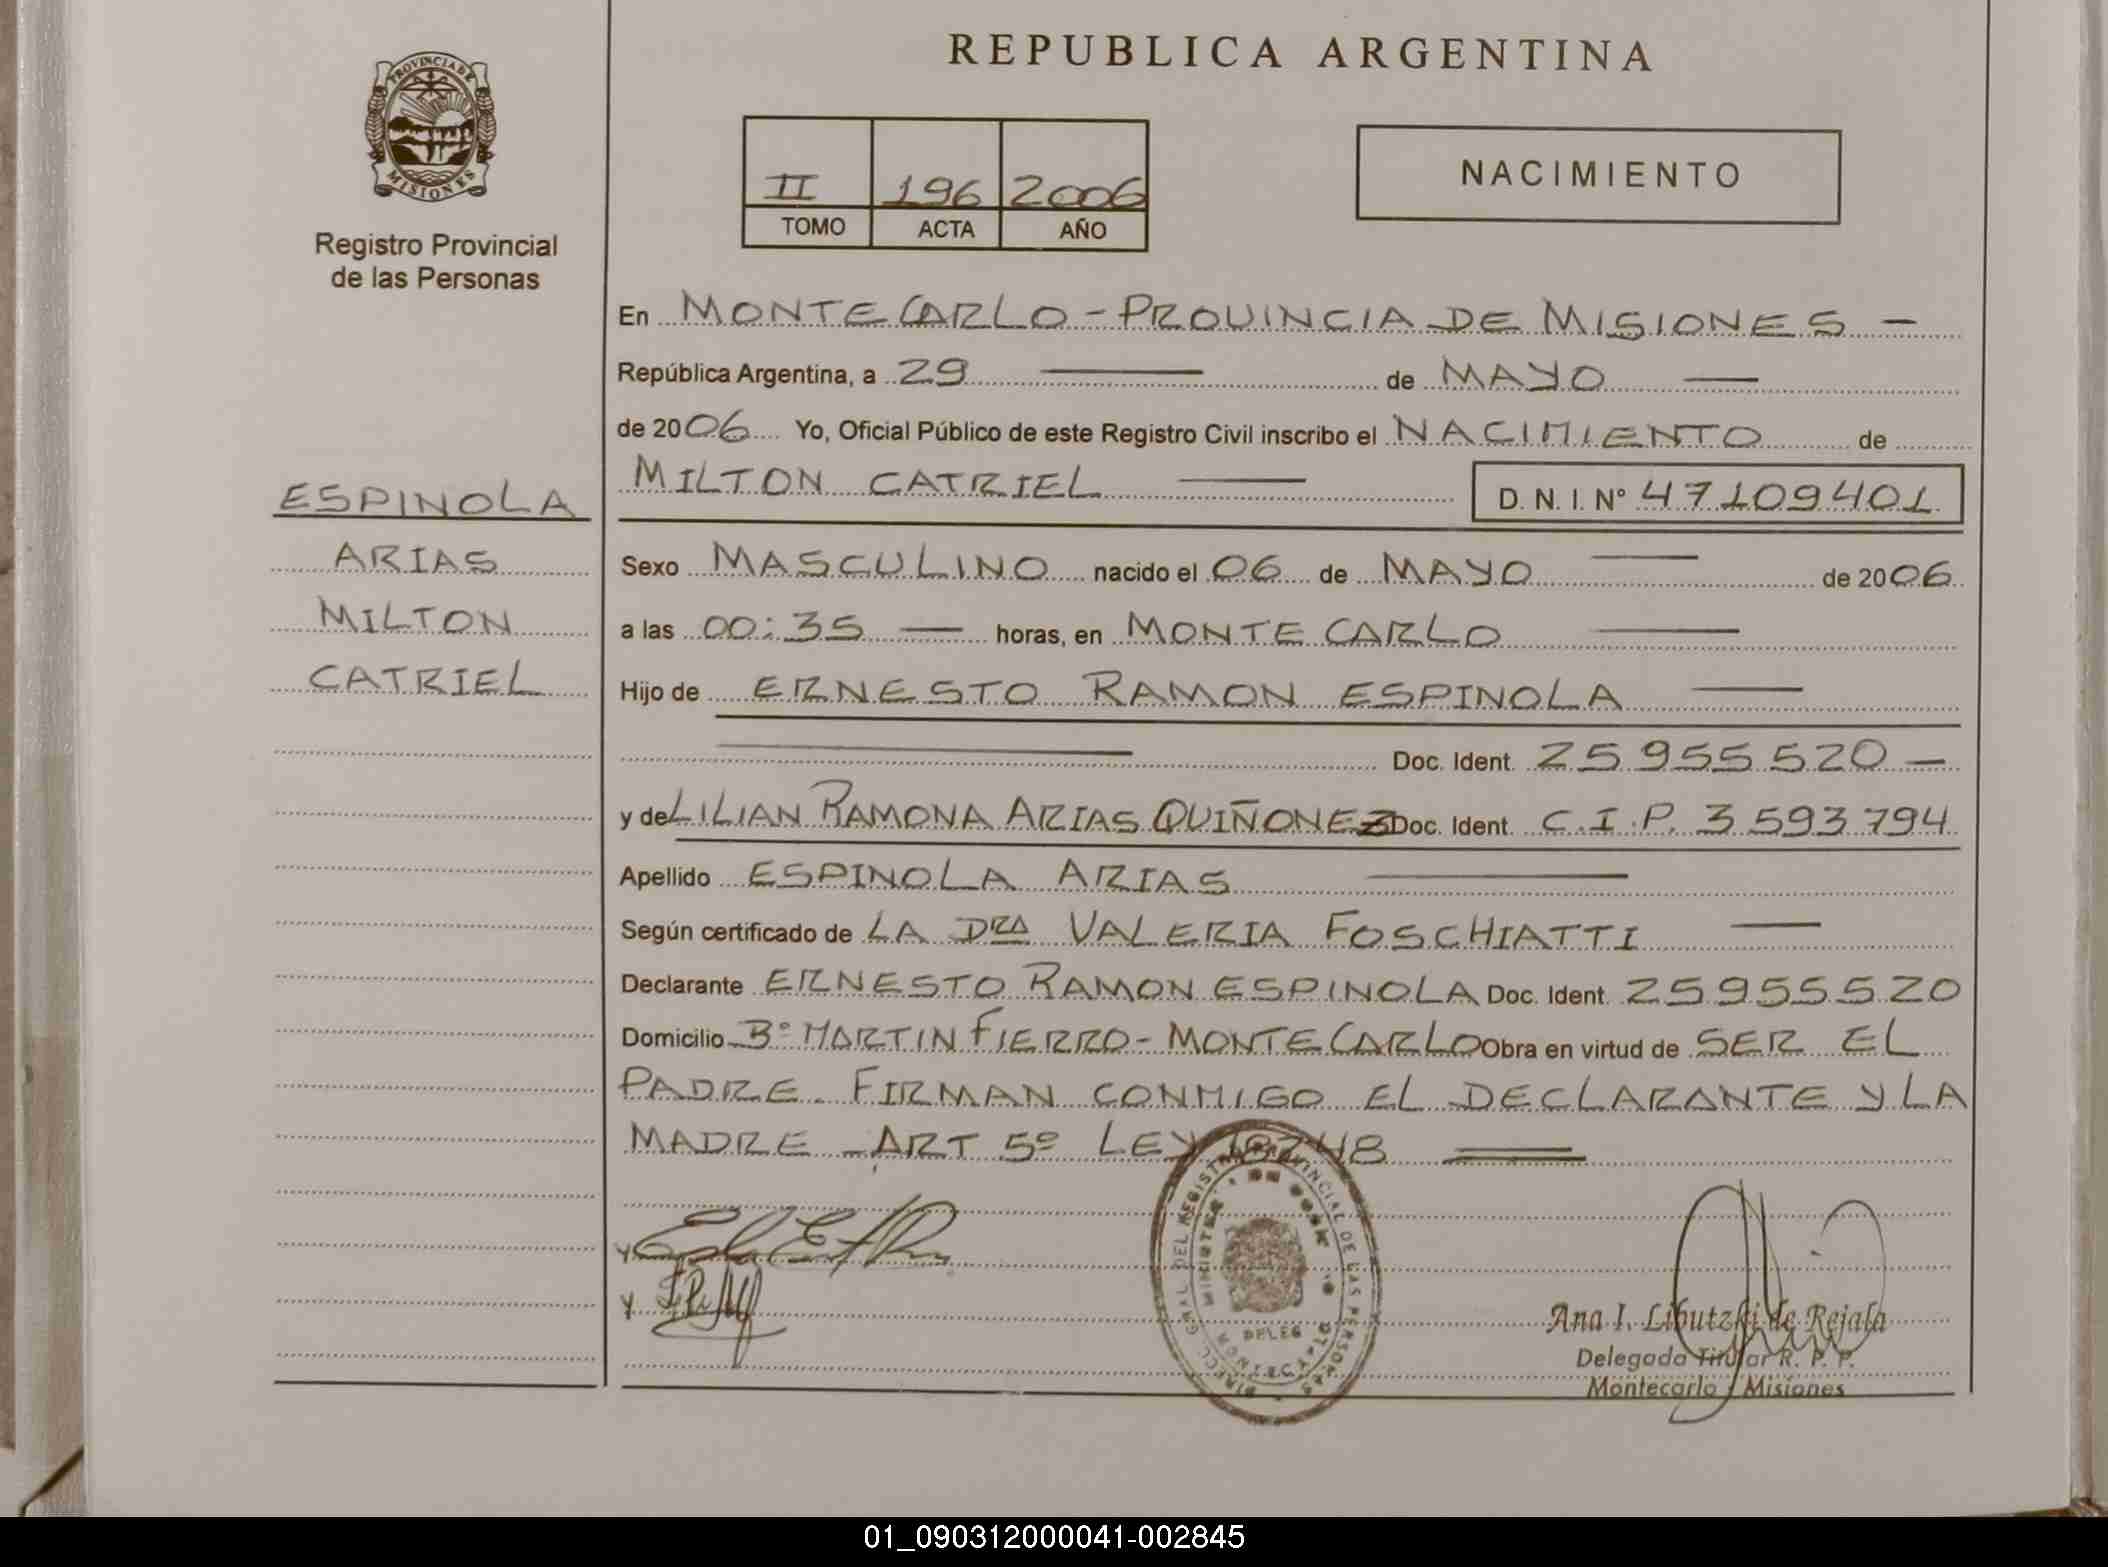 REPUBLICA ARGENTINA
PROVINCIA DE
MISIONES
Registro Provincial
de las Personas
II 196 2006
TOMO ACTA AÑO
NACIMIENTO
En MONTECARLO - PROVINCIA DE MISIONES -
República Argentina, a 29 — de MAYO —
de 2006 Yo, Oficial Público de este Registro Civil inscribo el NACIMIENTO de
MILTON CATRIEL — D. N. I. Nº 47109401
ESPINOLA
ARIAS
MILTON
CATRIEL
Sexo MASCULINO nacido el 06 de MAYO — de 2006
a las 00:35 — horas, en MONTECARLO —
Hijo de ERNESTO RAMON ESPINOLA —
— Doc. Ident. 25955520 —
y de LILIAN RAMONA ARIAS QUIÑONEZ Doc. Ident. C.I.P. 3593794
Apellido ESPINOLA ARIAS —
Según certificado de LA DRA VALERIA FOSCHIATTI —
Declarante ERNESTO RAMON ESPINOLA Doc. Ident. 25955520
Domicilio Bº MARTIN FIERRO - MONTECARLO Obra en virtud de SER EL
PADRE. FIRMAN CONMIGO EL DECLARANTE Y LA
MADRE - ART 5º LEY 18248 =
y
y
REGISTRO PROVINCIAL DE LAS PERSONAS
DELEG
MONTECARLO
Ana I. Libutzki de Rejala
Delegada Titular R. P. P.
Montecarlo - Misiones
01_090312000041-002845